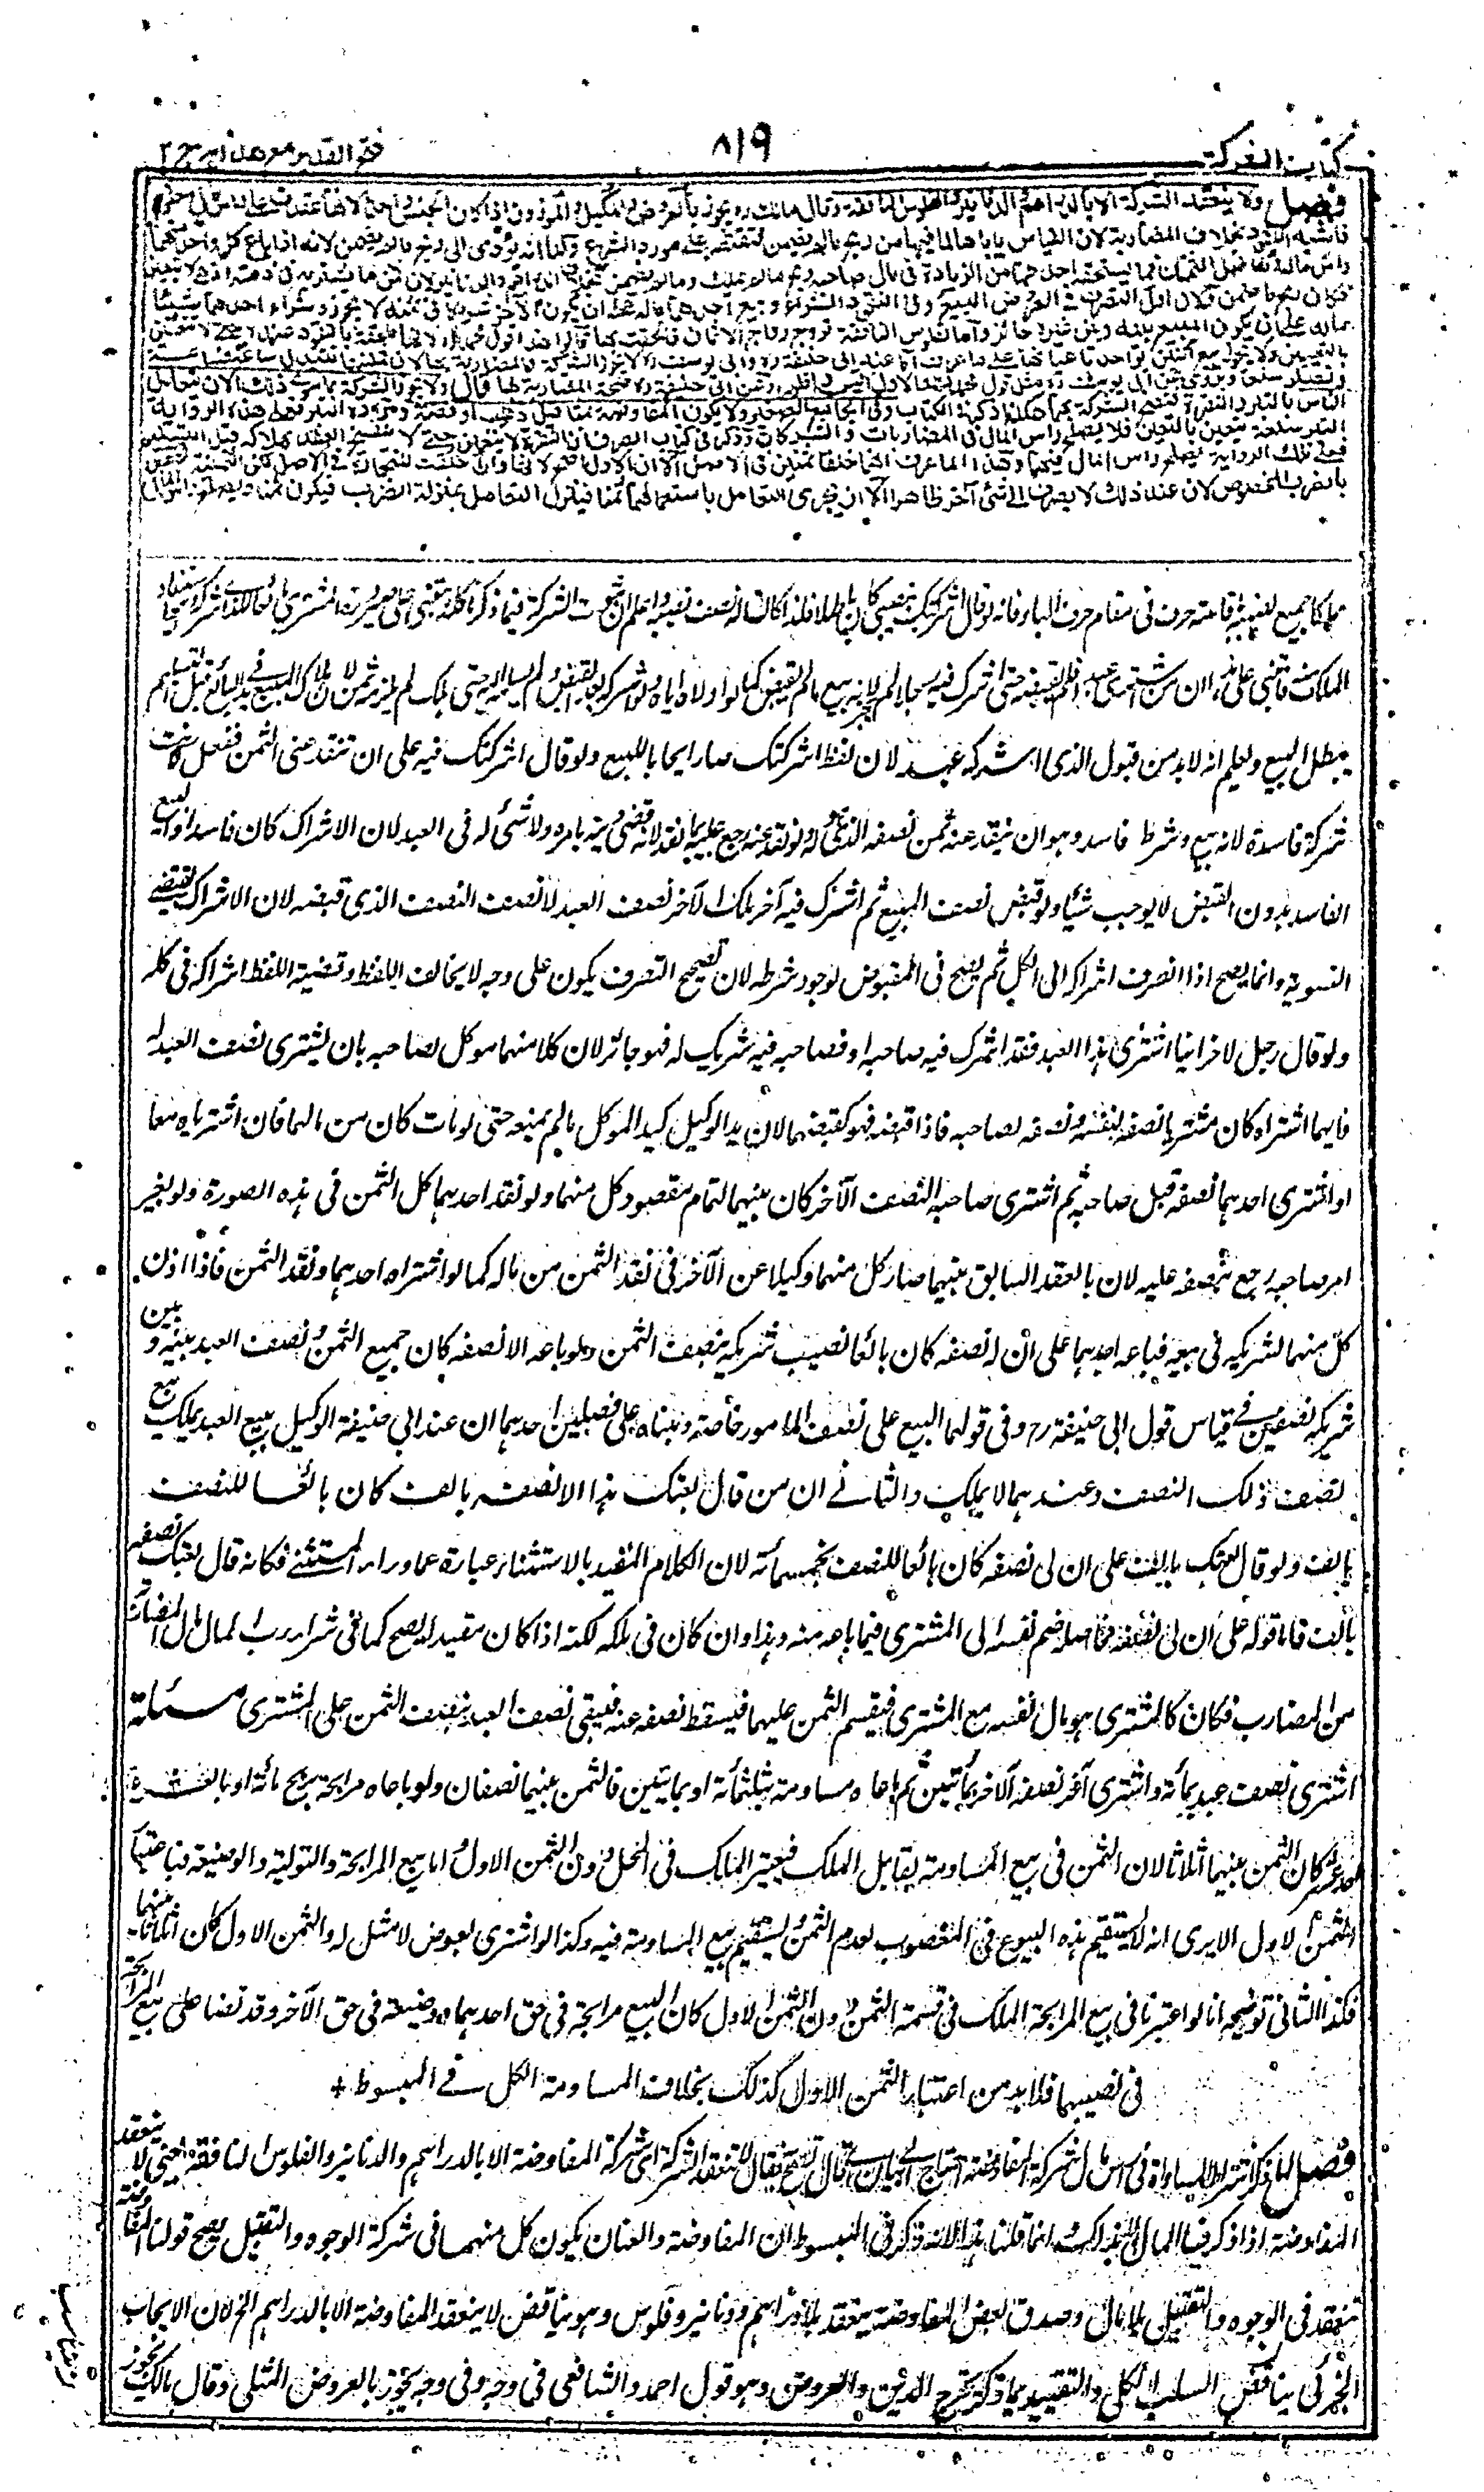 كتاب الشركة
٨١٩
فتح القدير مع هداية ج٢
فصل ولا ينعقد الشركة الا بالدراهم والدنانير والفلوس النافقة وقال مالك رح يجوز بالعروض والمكيل والموزون اذا كان الجنس واحدا لانها عقدت على راس مال معلوم
فاشبه النقود بخلاف المضاربة لان القياس ياباها لما فيها من ربح مالم يضمن فتقتصر على مورد الشرع ولنا انه يؤدى الى ربح مالم يضمن لانه اذا باع كل واحد منهما
راس ماله وتفاضل الثمنان فما يستحقه احدهما من الزيادة فى مال صاحبه ربح مالم يملك ومالم يضمن بخلاف الدراهم والدنانير لان ثمن ما يشتريه فى ذمته اذ هى لا تتعين
فكان ربح ما ضمن ولان اول التصرف فى العروض البيع وفى النقود الشراء وبيع احدهما ماله على ان يكون الآخر شريكا فى ثمنه لا يجوز وشراء احدهما شيئا
بماله على ان يكون المبيع بينه وبين غيره جائز واما الفلوس النافقة تروج رواج الاثمان فالحقت بها قالوا هذا قول محمد رح لانها ملحقة بالنقود عنده حتى لا تتعين
بالتعيين ولا يجوز بيع اثنين بواحد باعيانها على ما عرف اما عند ابى حنيفة رح وابى يوسف رح لا يجوز الشركة والمضاربة بها لان ثمنيتها تتبدل ساعة فساعة
وتصير سلعا وروى عن ابى يوسف رح مثل قول محمد رح والاول اقيس واظهر وعن ابى حنيفة رح صحة المضاربة بها قال ولا يجوز الشركة بما سوى ذلك الا ان يتعامل
الناس بالتبر والنقرة فتصح الشركة بهما هكذا ذكر فى الكتاب وفى الجامع الصغير ولا يكون المفاوضة بمثاقيل ذهب او فضة ومراده التبر فعلى هذه الرواية
التبر سلعة تتعين بالتعيين فلا يصلح راس المال فى المضاربات والشركات وذكر فى كتاب الصرف ان النقرة لا تتعين حتى لا ينفسخ العقد بهلاكه قبل التسليم
فعلى تلك الرواية يصلح راس المال فيهما وهذا لما عرف انهما خلقا ثمنين فى الاصل الا ان الاول اصح لانها وان خلقت للتجارة فى الاصل لكن الثمنية تختص
بالضرب المخصوص لان عند ذلك لا يصرف الى شئ آخر ظاهرا الا ان يجرى التعامل باستعمالهما ثمنا فينزل التعامل بمنزلة الضرب فيكون ثمنا ويصلح راس المال
الملك فاقتضى على هذا ان من اشترى عبدا فلم يقبضه حتى اشرك فيه رجلا لم يجز لانه بيع مالم يقبض كما لو ولاه اياه ولو اشركه بعد القبض ولم يسلم اليه حتى هلك لم يلزمه ثمن لان هلاك المبيع فى يد البائع قبل التسليم
يبطل البيع ولعلم انه لا بد من قبول الذى اشركه عبد لان لفظ اشركتك صار ايجابا للبيع ولو قال اشركتك فيه على ان تنقد عنى الثمن ففعل كانت
شركة فاسدة لانه بيع وشرط فاسد وهو ان ينقد عنه ثمن نصفه الذى هو له ولو نقد عنه رجع عليه بما نقد لانه قضى دينه بامره ولا شئ له فى العبد لان الاشراك كان فاسدا والبيع
الفاسد بدون القبض لا يوجب شيئا ولو قبض نصف المبيع ثم اشرك فيه آخر ملك الآخر نصف العبد لا نصف النصف الذى قبضه لان الاشراك يقتضى
التسوية وانما يصح اذا انصرف اشراكه الى الكل ثم يصح فى المقبوض لوجود شرطه لان تصحيح التصرف يكون على وجه لا يخالف اللفظ وقضية اللفظ اشراكه فى كله
ولو قال رجل لآخر اينا اشترى هذا العبد فقد اشرك فيه صاحبه او فصاحبه فيه شريك له فهو جائز لان كلا منهما موكل لصاحبه بان يشترى نصف العبد له
فايهما اشتراه كان مشتريا نصفه لنفسه ونصفه لصاحبه فاذا قبضه فهو كقبضهما لان يد الوكيل كيد الموكل مالم يمنعه حتى لو مات كان من مالهما فان اشترياه معا
او اشترى احدهما نصفه قبل صاحبه ثم اشترى صاحبه النصف الآخر كان بينهما لتمام مقصود كل منهما ولو نقد احدهما كل الثمن فى هذه الصورة ولو بغير
امر صاحبه رجع بنصفه عليه لان بالعقد السابق بينهما صار كل منهما وكيلا عن الآخر فى نقد الثمن من ماله كما لو اشتراه احدهما ونقد الثمن فاذا اذن
كل منهما لشريكه فى بيعه فباعه احدهما على ان له نصفه كان بائعا نصيب شريكه بنصف الثمن ولو باعه الا نصفه كان جميع الثمن ونصف العبد بينه وبين
شريكه نصفين فى قياس قول ابى حنيفة رح وفى قولهما البيع على نصف المامور خاصة وبناه على فصلين احدهما ان عند ابى حنيفة الوكيل ببيع العبد يملك بيع
نصف ذلك النصف وعندهما لا يملك والثانى ان من قال بعتك هذا الا نصفه بالف كان بائعا للنصف
بالف ولو قال بعتك بالف على ان لى نصفه كان بائعا للنصف بخمسمائة لان الكلام المقيد بالاستثناء عبارة عما وراء المستثنى فكانه قال بعتك نصفه
بالف فاما قوله على ان لى نصفه فحاصله ضم نفسه الى المشترى فيما باعه منه وهذا وان كان فى ملكه لكنه اذا كان مقيدا يصح كما فى شراء رب المال مال المضاربة
من المضارب فكان كالمشترى هو مال نفسه مع المشترى فينقسم الثمن عليهما فيسقط نصفه عنه فيبقى نصف العبد بنصف الثمن على المشترى مسئلة
اشترى نصف عبد بمائة واشترى آخر نصفه الآخر بمائتين ثم باعاه مساومة بثلثمائة او بمائتين فالثمن بينهما نصفان ولو باعاه مرابحة بربح مائة او بالعشرة
احد عشر كان الثمن بينهما اثلاثا لان الثمن فى بيع المساومة يقابل الملك فيعتبر الملك فى المحل دون الثمن الاول اما بيع المرابحة والتولية والوضيعة فباعتبار
الثمن الاول الا يرى انه لا يستقيم هذه البيوع فى المغصوب لعدم الثمن ويستقيم بيع المساومة فيه وكذا لو اشترى بعوض لا مثل له والثمن الاول كان اثلاثا بينهما
فكذا الثانى توضيحه انا لو اعتبرنا فى بيع المرابحة الملك فى قسمة الثمن دون الثمن الاول كان البيع مرابحة فى حق احدهما ووضيعة فى حق الآخر وقد نصا على بيع المرابحة
فى نصيبهما فلا بد من اعتبار الثمن الاول كذلك بخلاف المساومة الكل فى المبسوط +
المفاوضة اذا ذكر فيها المال الا بذلك وانما قلنا هذا لانه ذكر فى المبسوط ان المفاوضة والعنان يكون كل منهما فى شركة الوجوه والتقبل يصح قولنا المفاوضة
تنعقد فى الوجوه والتقبل بلا مال وصدق بعض المفاوضة ينعقد بلا دراهم ودنانير وفلوس وهو يناقض لا ينعقد المفاوضة الا بالدراهم الخ لان الايجاب
الجزئى يناقض السلب الكلى والتقييد بما ذكر يخرج الدين والعروض وهو قول احمد والشافعى فى وجه وفى وجه يجوز بالعروض المثلى وقال مالك يجوز